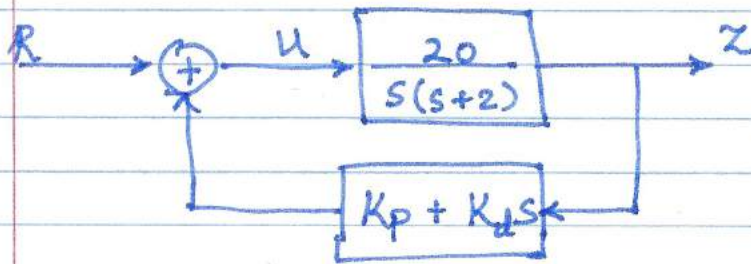 R + U 20 Z
s(s+2)
Kp + Kds